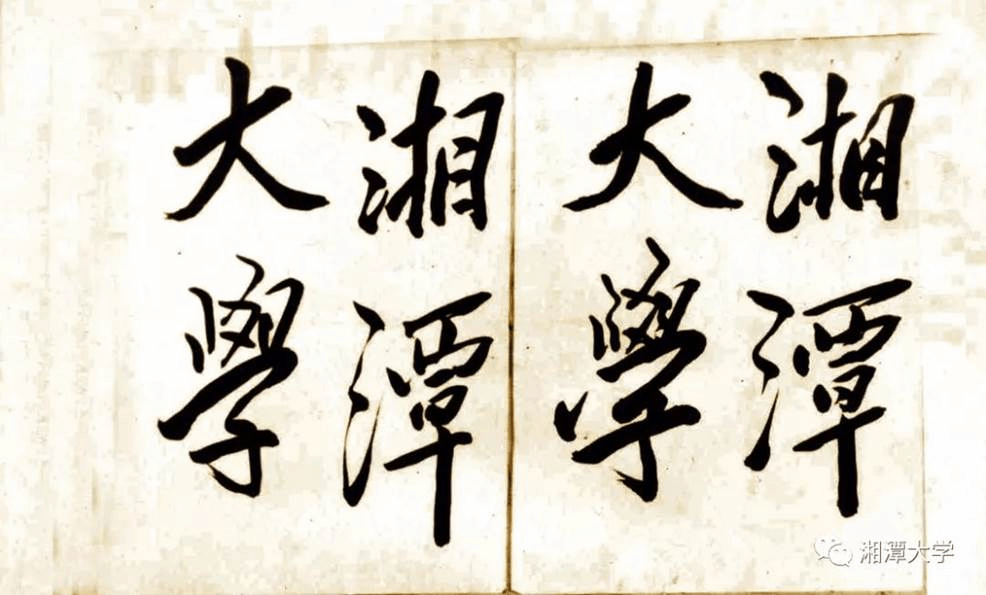 湘潭
大學
湘潭
大學
湘潭大学